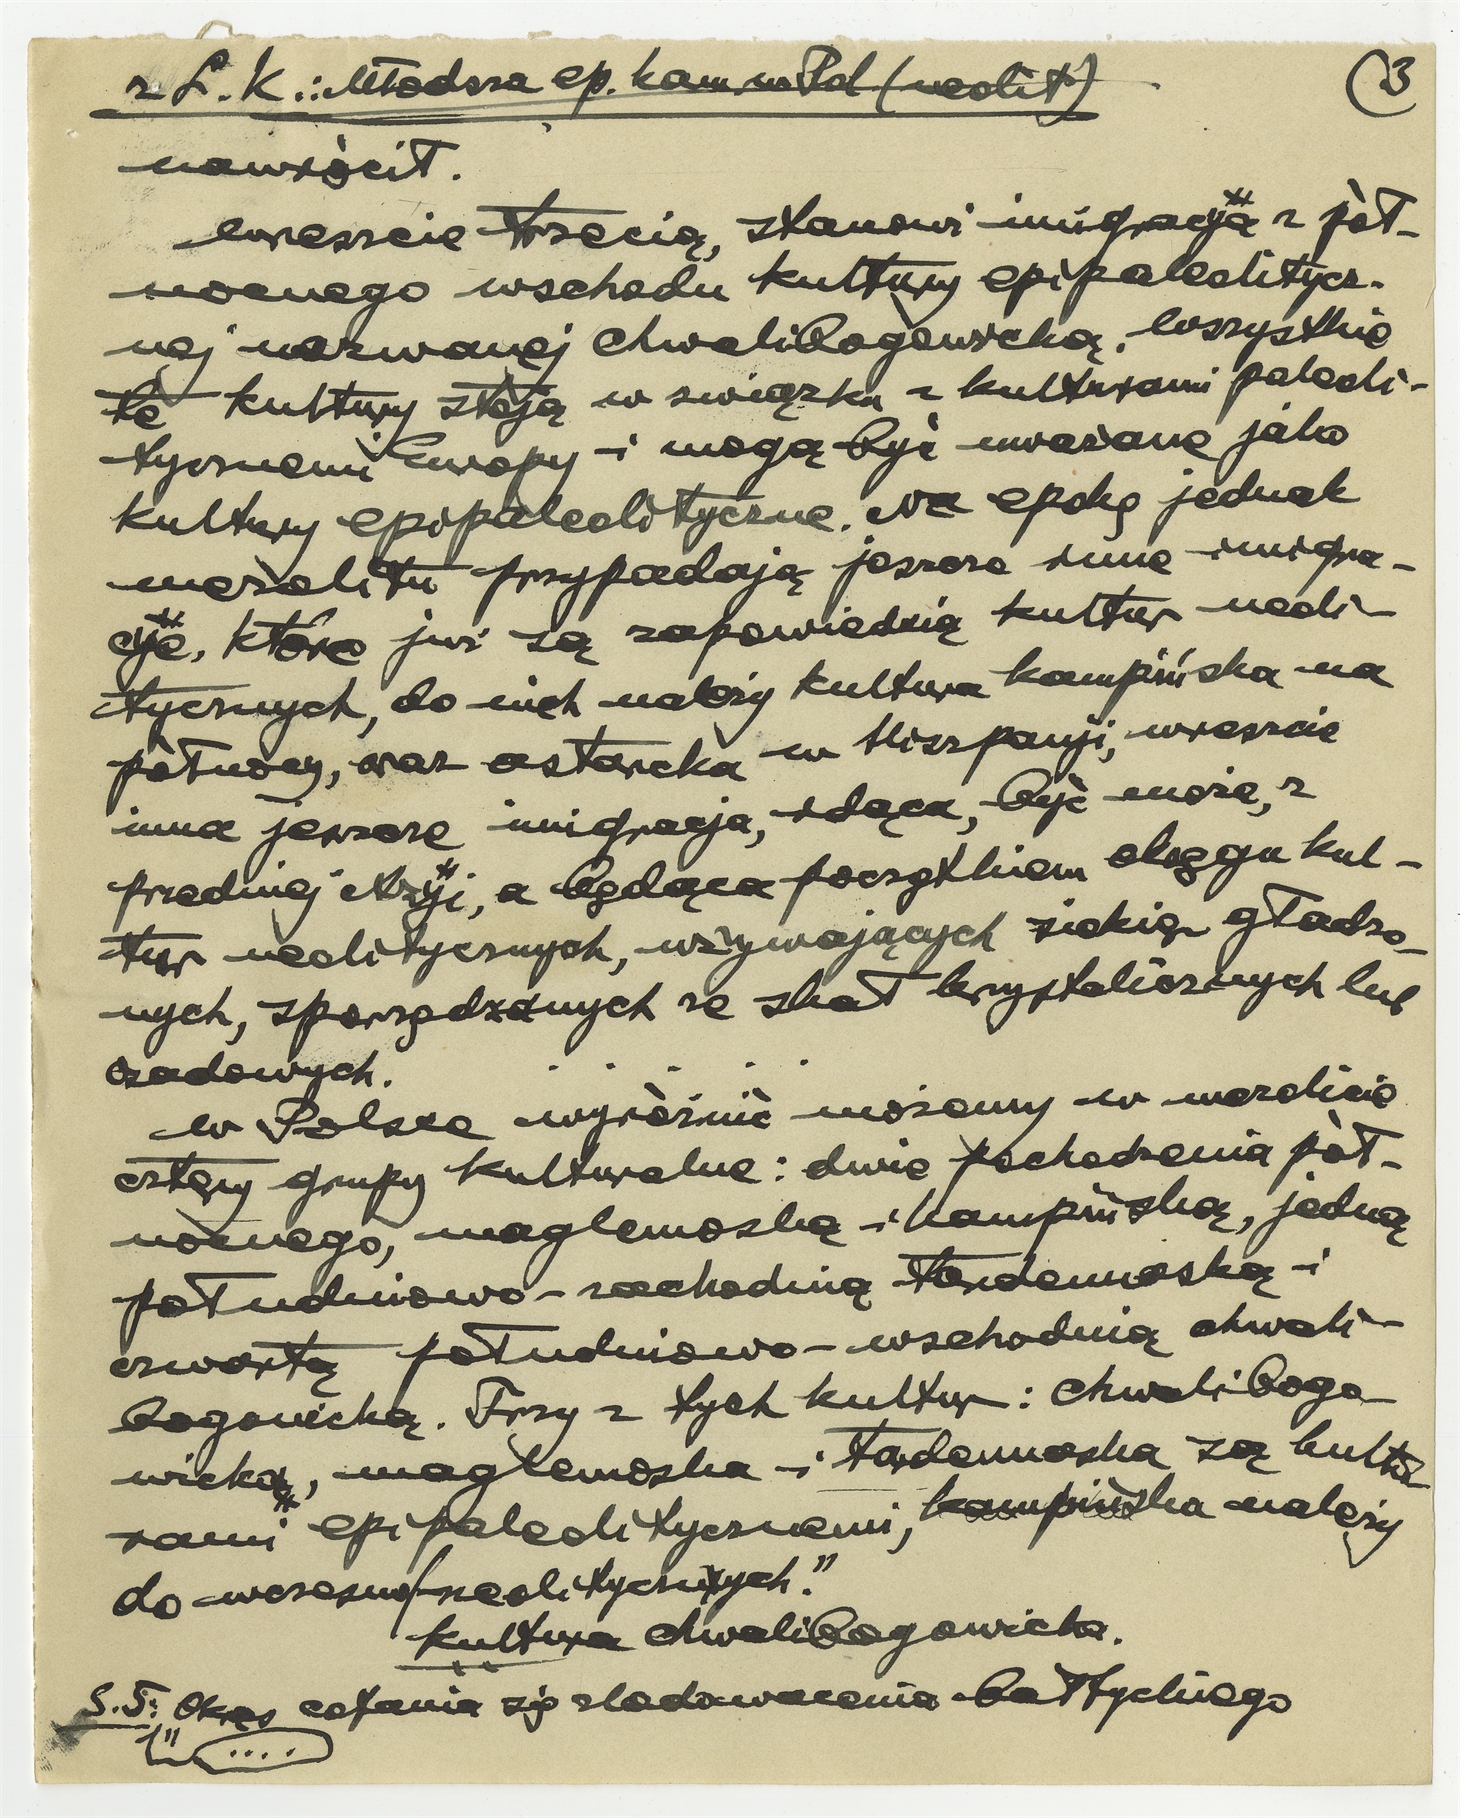 z L. K.: Młodsza ep. kam. w Pol (neolit) 3
nawrócił.
Wreszcie trzecią, stanowi imigracyja z pół-
nocnego wschodu kultury epipaleolitycz-
nej nazwanej chwalibogowicką. Wszystkie
te kultury stoją w związku z kulturami paleoli-
tycznemi Europy i mogą być uważane jako
kultury epipaleolityczne. Na epokę jednak
mezolitu przypadają jeszcze inne imigra-
cyje, które już są zapowiedzią kultur neoli-
tycznych, do nich należy kultura kampińska na
północy, oraz asturcka w Hiszpanji, wreszcie
inna jeszcze imigracja, idąca, być może, z
przedniej Azyji, a będąca początkiem okręgu kul-
tur neolitycznych, używających siekier gładzo-
nych, sporządzanych ze skał krystalicznych lub
osadowych. . . . . .
W Polsce wyróżnić możemy w mezolicie
cztery grupy kulturalne: dwie pochodzenia pół-
nocnego, maglemoską i kampińską, jedną
południowo-zachodnią tardenuoską i
czwartą południowo-wschodnią chwali-
bogowicką. Trzy z tych kultur: chwalibogo-
wicka, maglemoska i tardenuoska są kultu-
rami epipaleolitycznemi, kampińska należy
do wczesno neolitycznych."
Kultura chwalibogowicka.
S.S: Okres cofania się zlodowacenia bałtyckiego
....